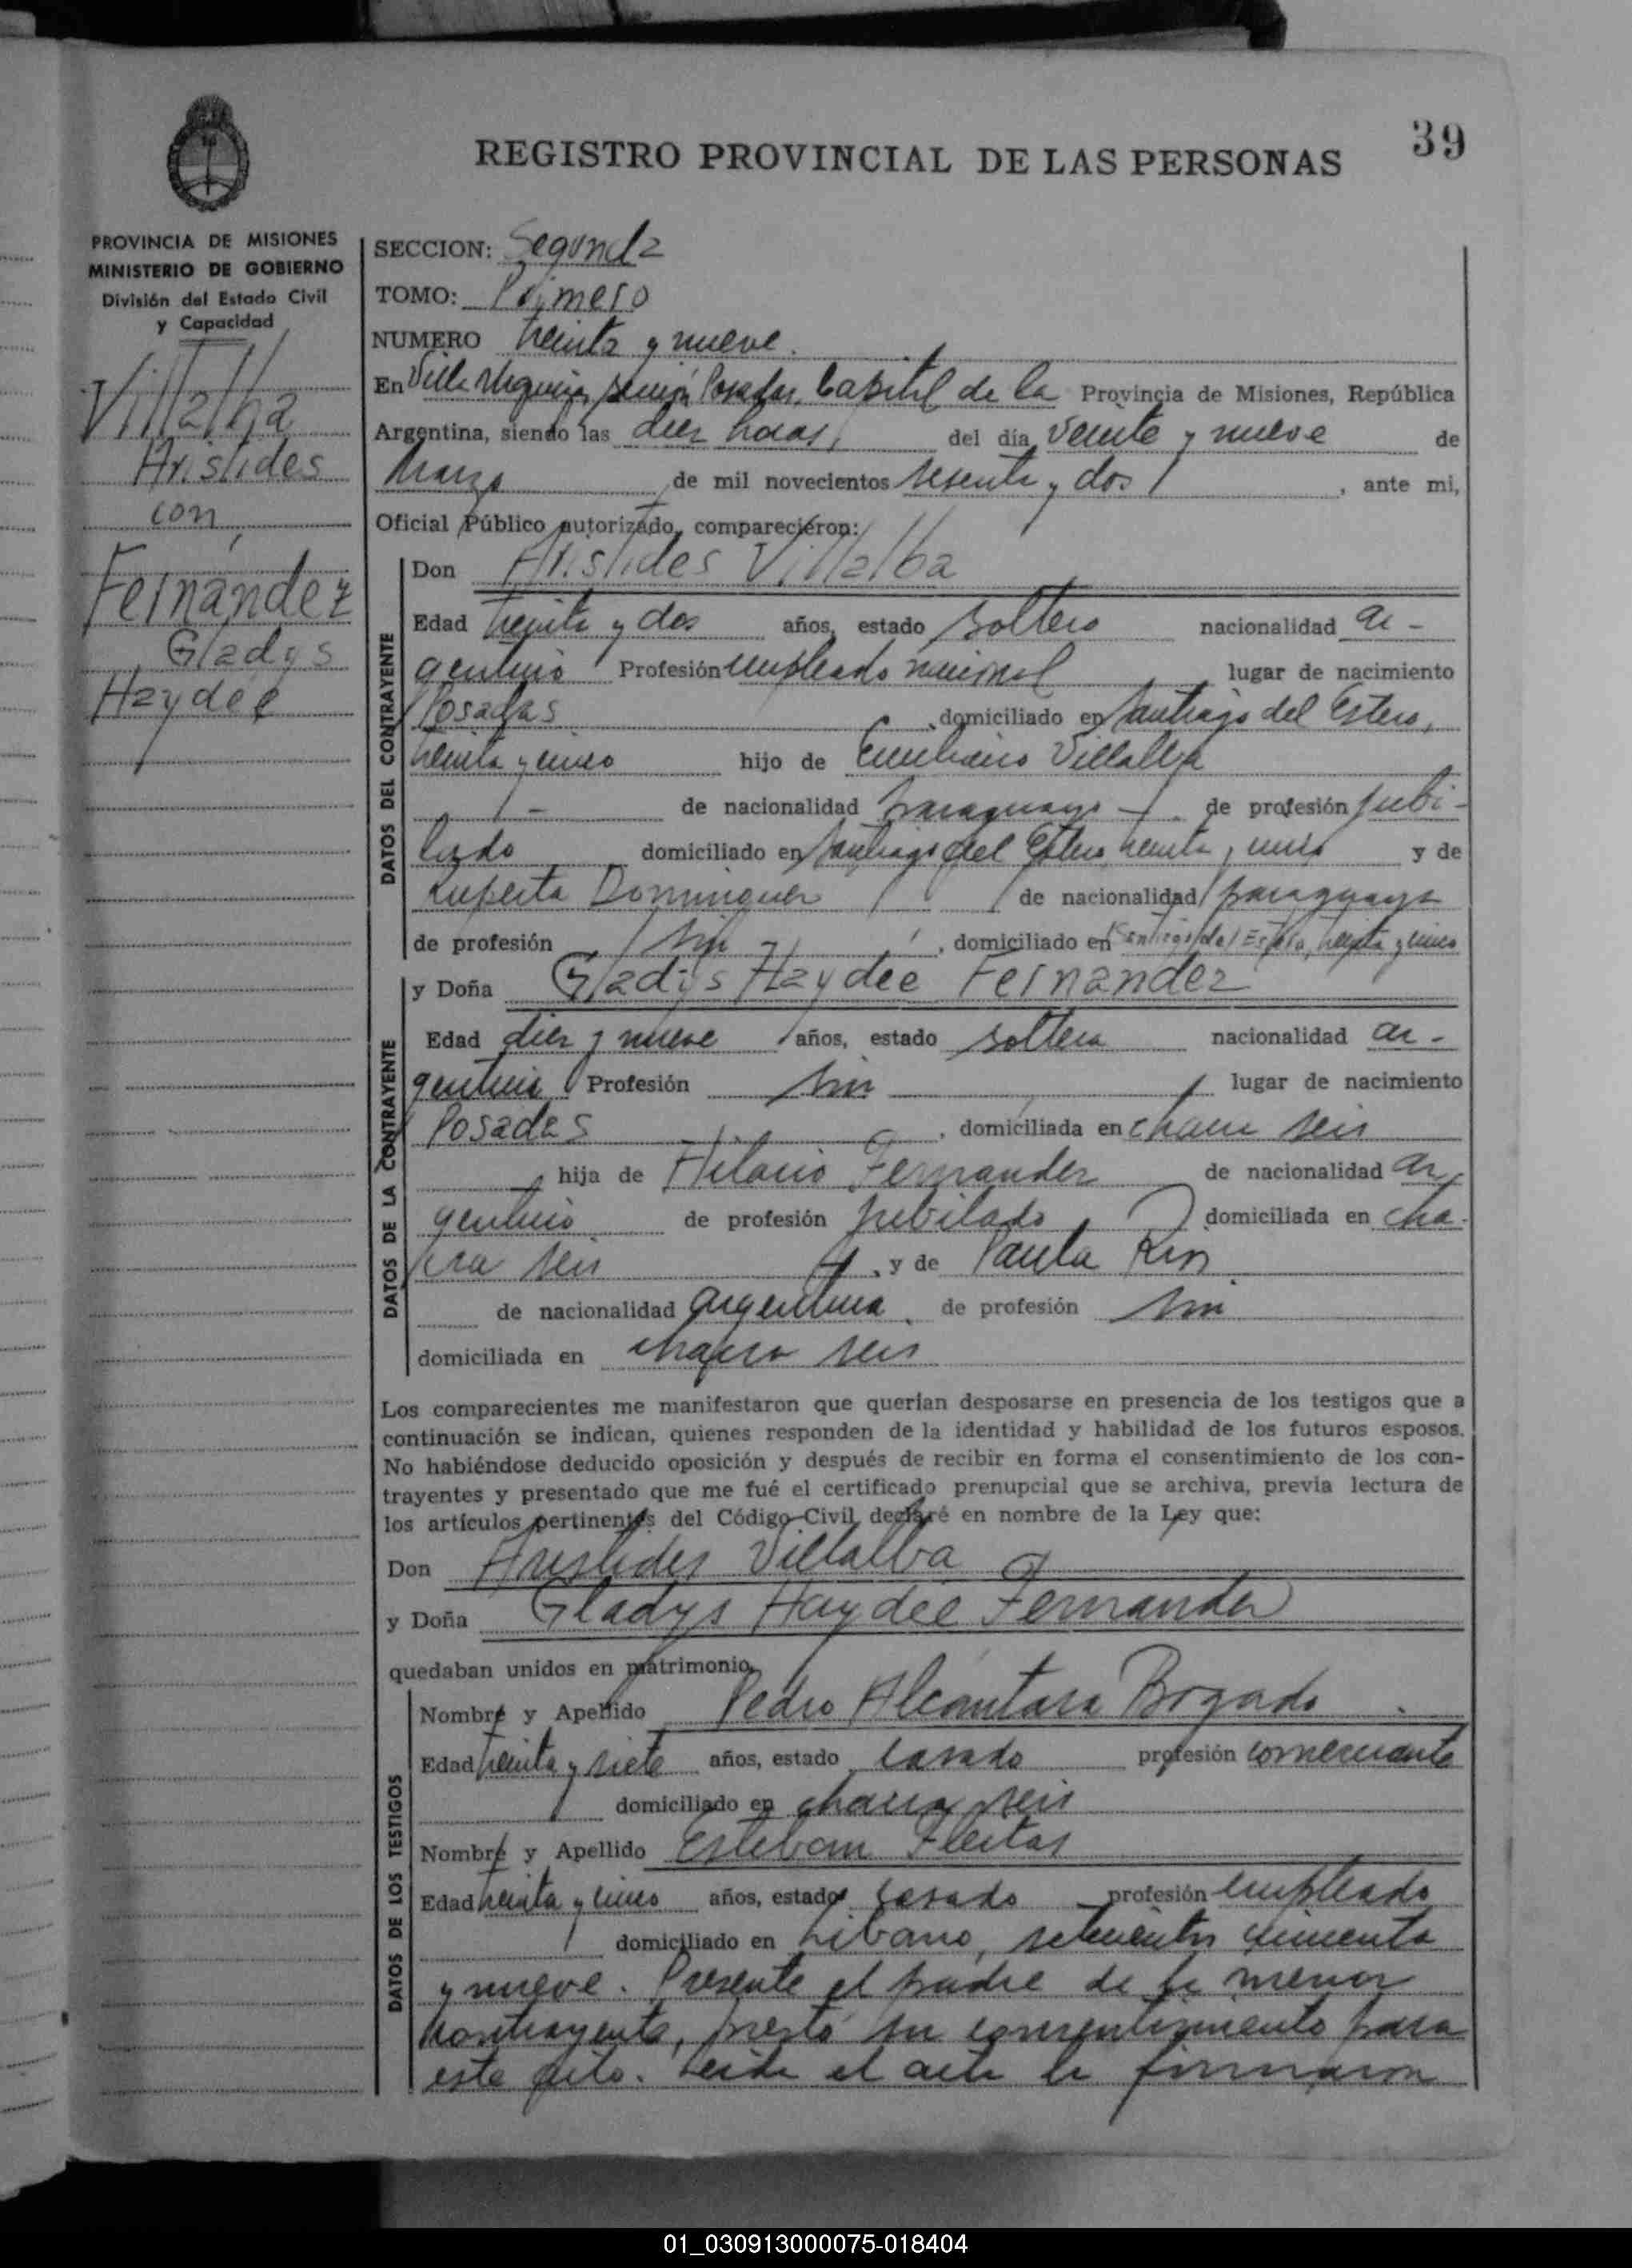 39
REGISTRO PROVINCIAL DE LAS PERSONAS
PROVINCIA DE MISIONES
MINISTERIO DE GOBIERNO
División del Estado Civil
y Capacidad
Villalba
Aristides
con
Fernández
Gladys
Haydée
SECCION: Segunda
TOMO: Primero
NUMERO treinta y nueve.
En Villa Urquiza, sección Posadas, Capital de la Provincia de Misiones, República
Argentina, siendo las diez horas, del día veinte y nueve de
marzo de mil novecientos sesenta y dos, ante mi,
Oficial Público autorizado, comparecieron:
DATOS DEL CONTRAYENTE
Don Aristides Villalba
Edad treinta y dos años, estado soltero nacionalidad ar-
gentino Profesión empleado nacional lugar de nacimiento
Posadas, domiciliado en Santiago del Estero,
treinta y cinco hijo de Emiliano Villalba
- de nacionalidad paraguayo de profesión jubi-
lado domiciliado en Santiago del Estero, treinta y cinco y de
Ruperta Dominguez de nacionalidad paraguaya
de profesión sin, domiciliado en Santiago del Estero, treinta y cinco
DATOS DE LA CONTRAYENTE
y Doña Gladys Haydée Fernández
Edad diez y nueve años, estado soltera nacionalidad ar-
gentina Profesión sin lugar de nacimiento
Posadas, domiciliada en chacra seis
hija de Hilario Fernandez de nacionalidad ar
gentino de profesión jubilado domiciliada en cha-
cra seis, y de Paula Rios
de nacionalidad argentina de profesión sin
domiciliada en chacra seis
Los comparecientes me manifestaron que querían desposarse en presencia de los testigos que a
continuación se indican, quienes responden de la identidad y habilidad de los futuros esposos.
No habiéndose deducido oposición y después de recibir en forma el consentimiento de los con-
trayentes y presentado que me fué el certificado prenupcial que se archiva, previa lectura de
los artículos pertinentes del Código Civil, declaré en nombre de la Ley que:
Don Aristides Villalba
y Doña Gladys Haydée Fernandez
quedaban unidos en matrimonio.
DATOS DE LOS TESTIGOS
Nombre y Apellido Pedro Alcantara Bogado.
Edad treinta y siete años, estado casado profesión comerciante
domiciliado en chacra seis
Nombre y Apellido Esteban Fleitas
Edad treinta y cinco años, estado casado profesión empleado
domiciliado en Libano, setecientos cincuenta
y nueve. Presente el padre de la menor
contrayente, prestó su consentimiento para
este acto. Leida el acta la firmaron
01_030913000075-018404